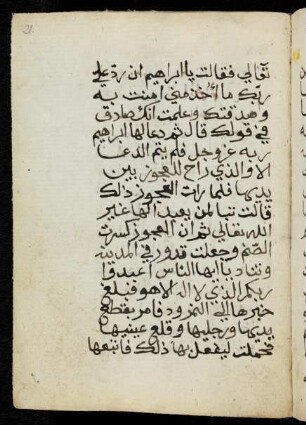 تعالي فقالت يا ابراهيم ان رد علي
ربك ما اخذ مني امنت به
وصدقتك وعلمت انك صادق
في قولك قال ثم دعا لها ابراهيم
ربه عز وجل فلم يتم الدعا
الا والذي راح للعجوز بين
يديها فلما رات العجوز ذلك
قالت تبا لمن يعبد الها غير
الله تعالي ثم ان العجوز كسرت
الصنم وجعلت تدور في المدينه
وتنادي يا ايها الناس اعبدوا
ربكم الذي لا اله الا هو فبلغ
خبرها الي النمرود فامر بقطع
يديها ورجليها وقلع عينيها
فحملت ليفعل بها ذلك فاتبعها